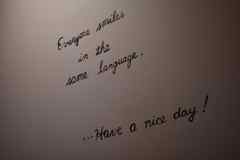 Everyone smiles
in the
same language.
...Have a nice day!